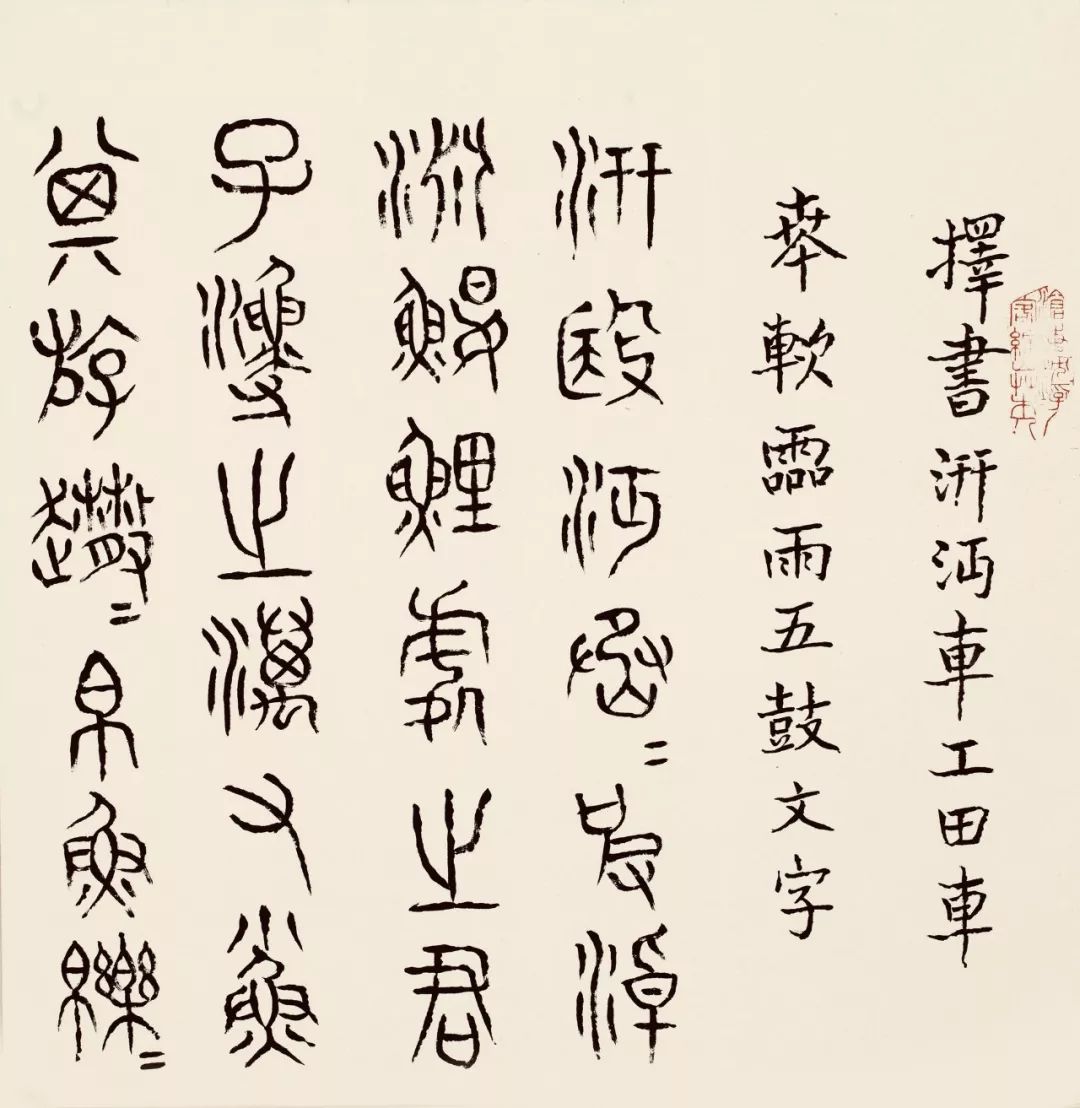 擇書汧沔車工田車
𠦪軟霝雨五鼓文字
汧殹沔丞＝皮淖
淵鰋鯉處之君
子漁之澫又小魚
其斿＝帛魚皪＝